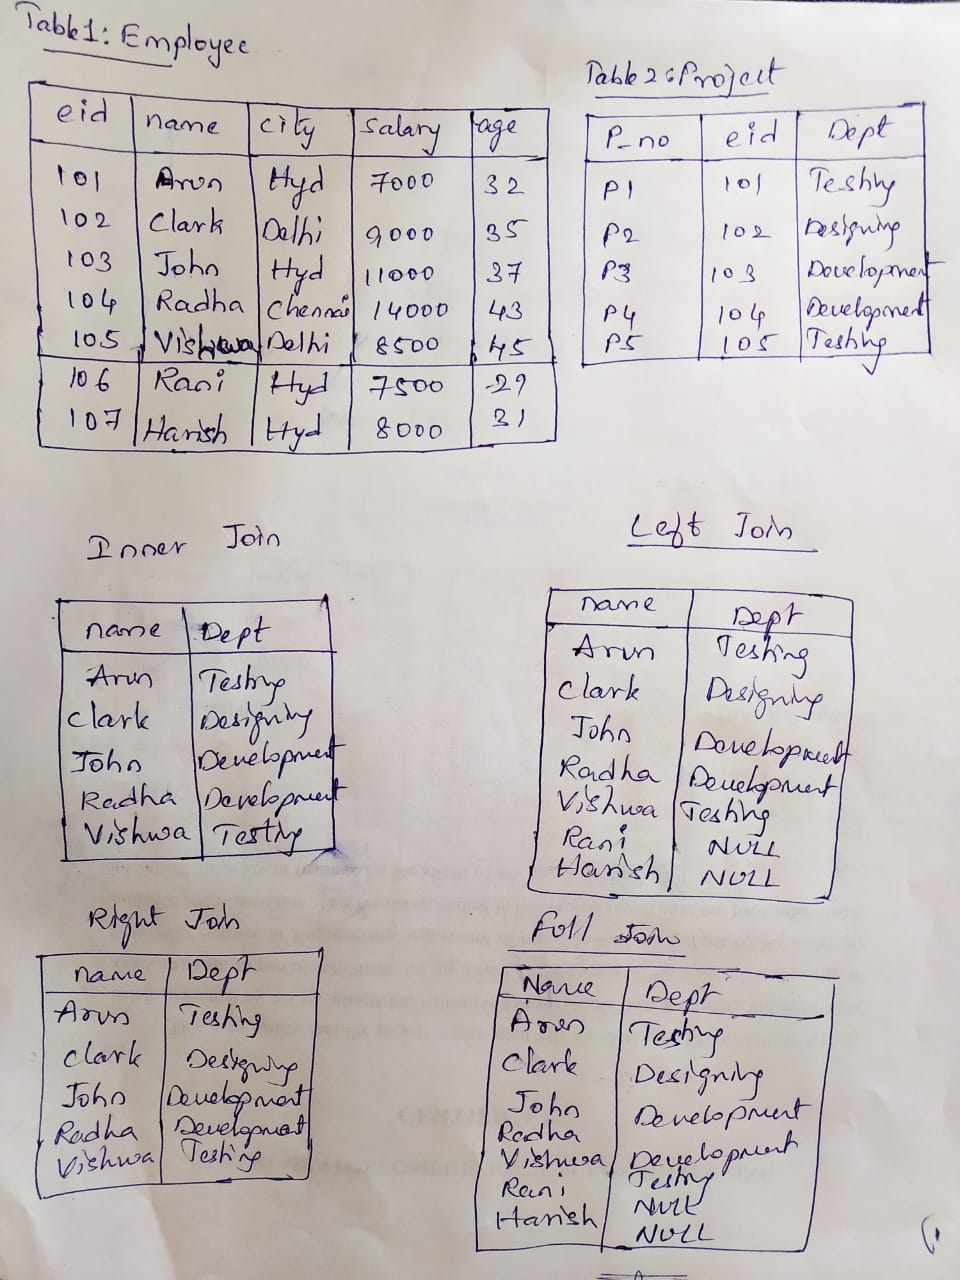 Table1: Employee
eid name city salary age
101 Arun Hyd 7000 32
102 Clark Delhi 9000 35
103 John Hyd 11000 37
104 Radha Chennai 14000 43
105 Vishwa Delhi 8500 45
106 Rani Hyd 7500 29
107 Harish Hyd 8000 31
Table2: Project
P_no eid Dept
P1 101 Testing
P2 102 Designing
P3 103 Development
P4 104 Development
P5 105 Testing
Inner Join
name Dept
Arun Testing
Clark Designing
John Development
Radha Development
Vishwa Testing
Left Join
name Dept
Arun Testing
Clark Designing
John Development
Radha Development
Vishwa Testing
Rani NULL
Harish NULL
Right Join
name Dept
Arun Testing
Clark Designing
John Development
Radha Development
Vishwa Testing
Full Join
Name Dept
Arun Testing
Clark Designing
John Development
Radha Development
Vishwa Testing
Rani NULL
Harish NULL